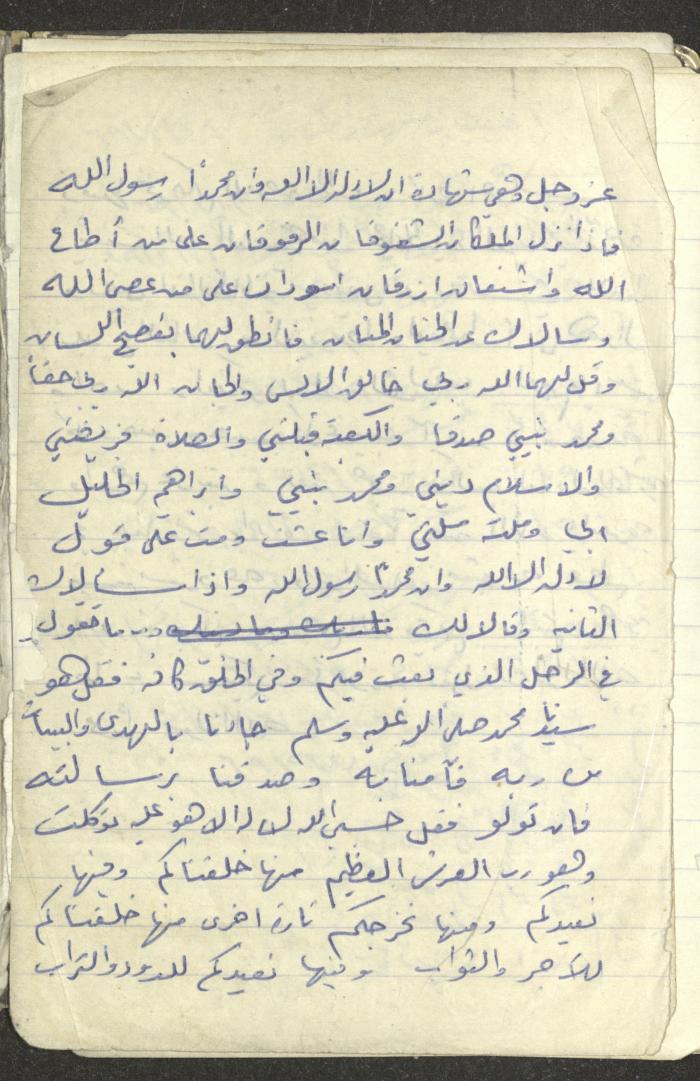 عز وجل وهي شهادة ان لا اله الا الله وان محمداً رسول الله
فاذا نزل الملكان الشفوقان الرفوقان على من أطاع
الله واشنعان ازرقان اسودان على من عصى الله
وسالاك عن الحنان المنان فانطق لهما بفصيح اللسان
وقل لهما الله ربي خالق الانس والجان الله ربي حقاً
ومحمد نبيي صدقا والكعبة قبلتي والصلاة فريضتي
والاسلام ديني ومحمد نبيي وابراهيم الخليل
ابي وملته ملتي وانا عشت ومت على قول
لا اله الا الله وان محمداً رسول الله واذا سالاك
الثانيه وقالا لك وما تقول
في الرجل الذي بعث فيكم وفي الخلق كافه فقل هو
سيدنا محمد صلى الله عليه وسلم جاءنا بالهدى والبينات
من ربه فآمنا به وصدقنا برسالته
فان تولو فقل حسبي الله لا اله الا هو عليه توكلت
وهو رب العرش العظيم منها خلقناكم وفيها
نعيدكم ومنها نخرجكم تارة اخرى منها خلقناكم
للأجر والثواب وفيها نعيدكم للدود والتراب